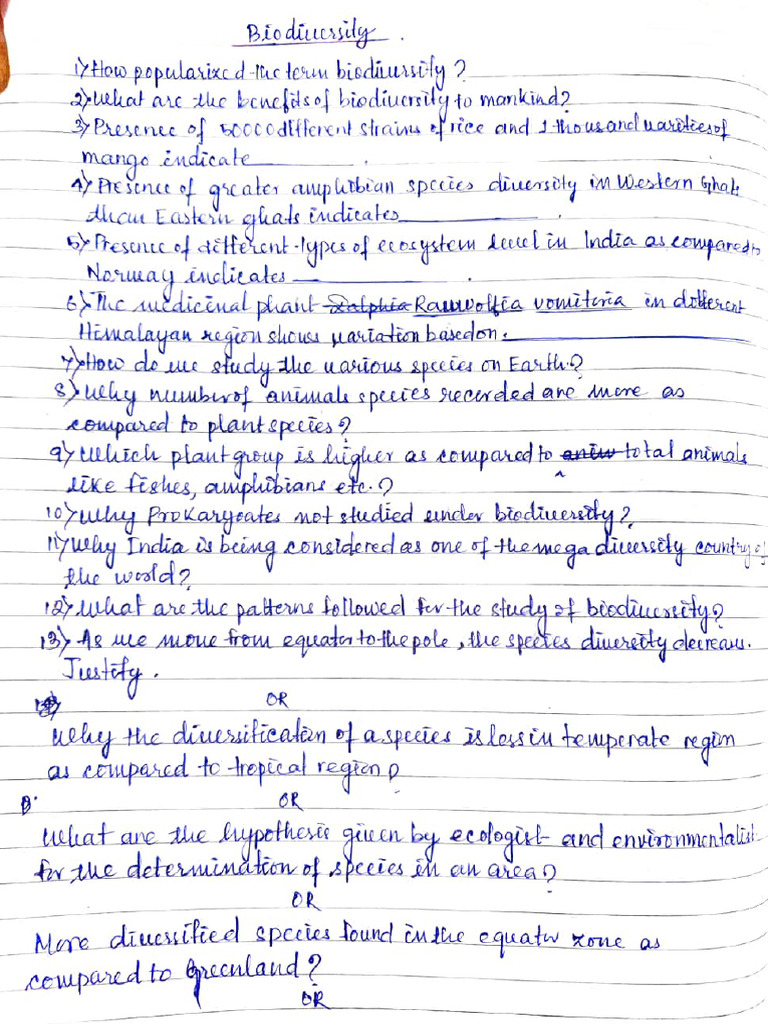 Biodiversity.
1) How popularized the term biodiversity?
2) What are the benefits of biodiversity to mankind?
3) Presence of 50000 different strains of rice and 1 thousand varities of
mango indicate ________.
4) Presence of greater amphibian species diversity in Western Ghats
than Eastern ghats indicates ________.
5) Presence of different types of ecosystem level in India as compared to
Norway indicates ________.
6) The medicinal plant Rauwolfia vomitoria in different
Himalayan region shows variation based on. ________
7) How do we study the various species on Earth?
8) Why number of animals species recorded are more as
compared to plant species?
9) Which plant group is higher as compared to total animals
like fishes, amphibians etc.?
10) Why Prokaryoates not studied under biodiversity?
11) Why India is being considered as one of the mega diversity country of
the world?
12) What are the patterns followed for the study of biodiversity?
13) As we move from equator to the pole, the species diversity decreas.
Justify.
OR
Why the diversification of a species is less in temperate region
as compared to tropical region?
OR
What are the hypothesis given by ecologist and environmentalist
for the determination of species in an area?
OR
More diversified species found in the equator zone as
compared to Greenland?
OR